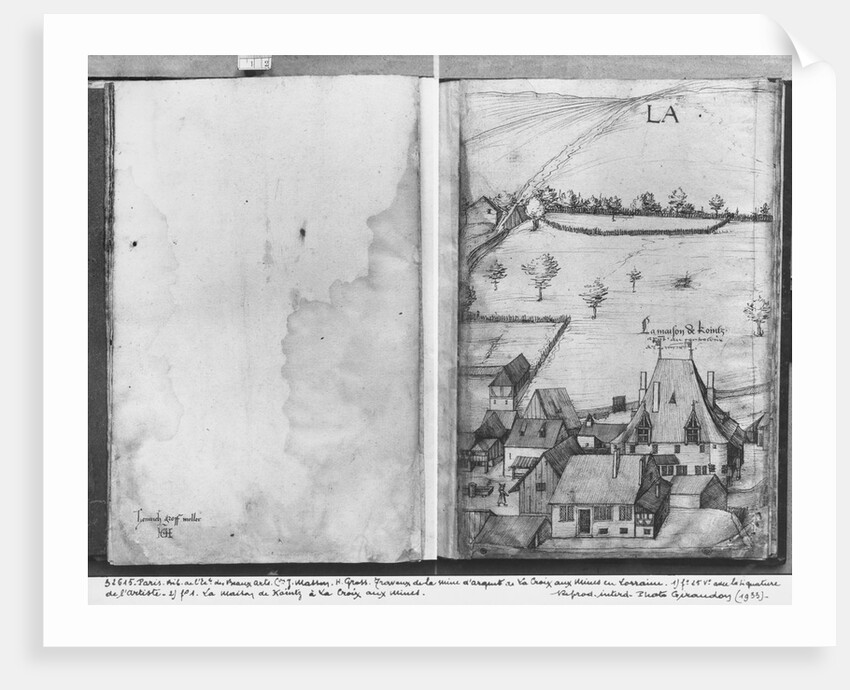 LA .
La maison de Kointz
Heinrich groff moller
HG
32615. Paris. Bib. de l'Ec. des Beaux Arts. (Con J. Masson. H. Gross. Travaux de la Mine d'argent de La Croix aux Mines en Lorraine. 1) fo 25 Vo avec la signature
de l'Artiste. 2) fo 1. La Maison de Kointz à La Croix aux Mines. Reprod. interd. Photo Giraudon (1933).